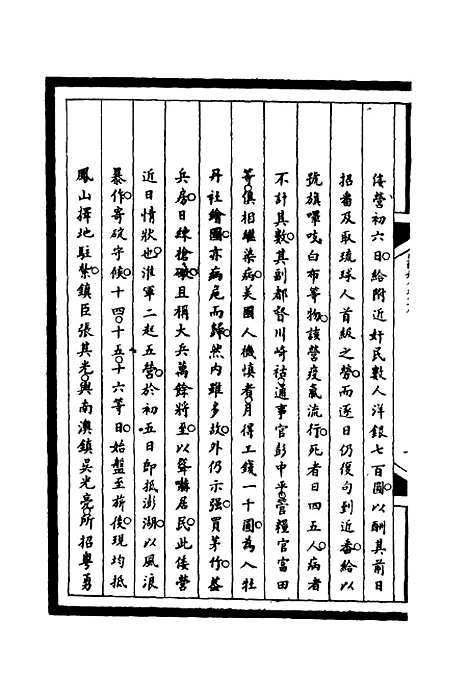 倭營初六日給附近奸民數人洋銀七百圓以酬其前日
招番及取琉球人首級之勞而逐日仍復勾到近番給以
號旗嗶吱白布等物該營疫氣流行死者日四五人病者
不計其數其副都督川崎祜通事官彭中平管糧官富田
等俱相繼染病美國人機慎者月得工錢一千圓為入牡
丹社繪圖亦病危而歸然內雖多故外仍示強買茅竹蓋
兵房日練槍礮且稱大兵萬餘將至以聳嚇居民此倭營
近日情狀也淮軍二起五營於初五日即抵澎湖以風浪
暴作寄碇守候十四十五十六等日始盤至旂後現均抵
鳳山擇地駐紮鎮臣張其光與南澳鎮吳光亮所招粵勇